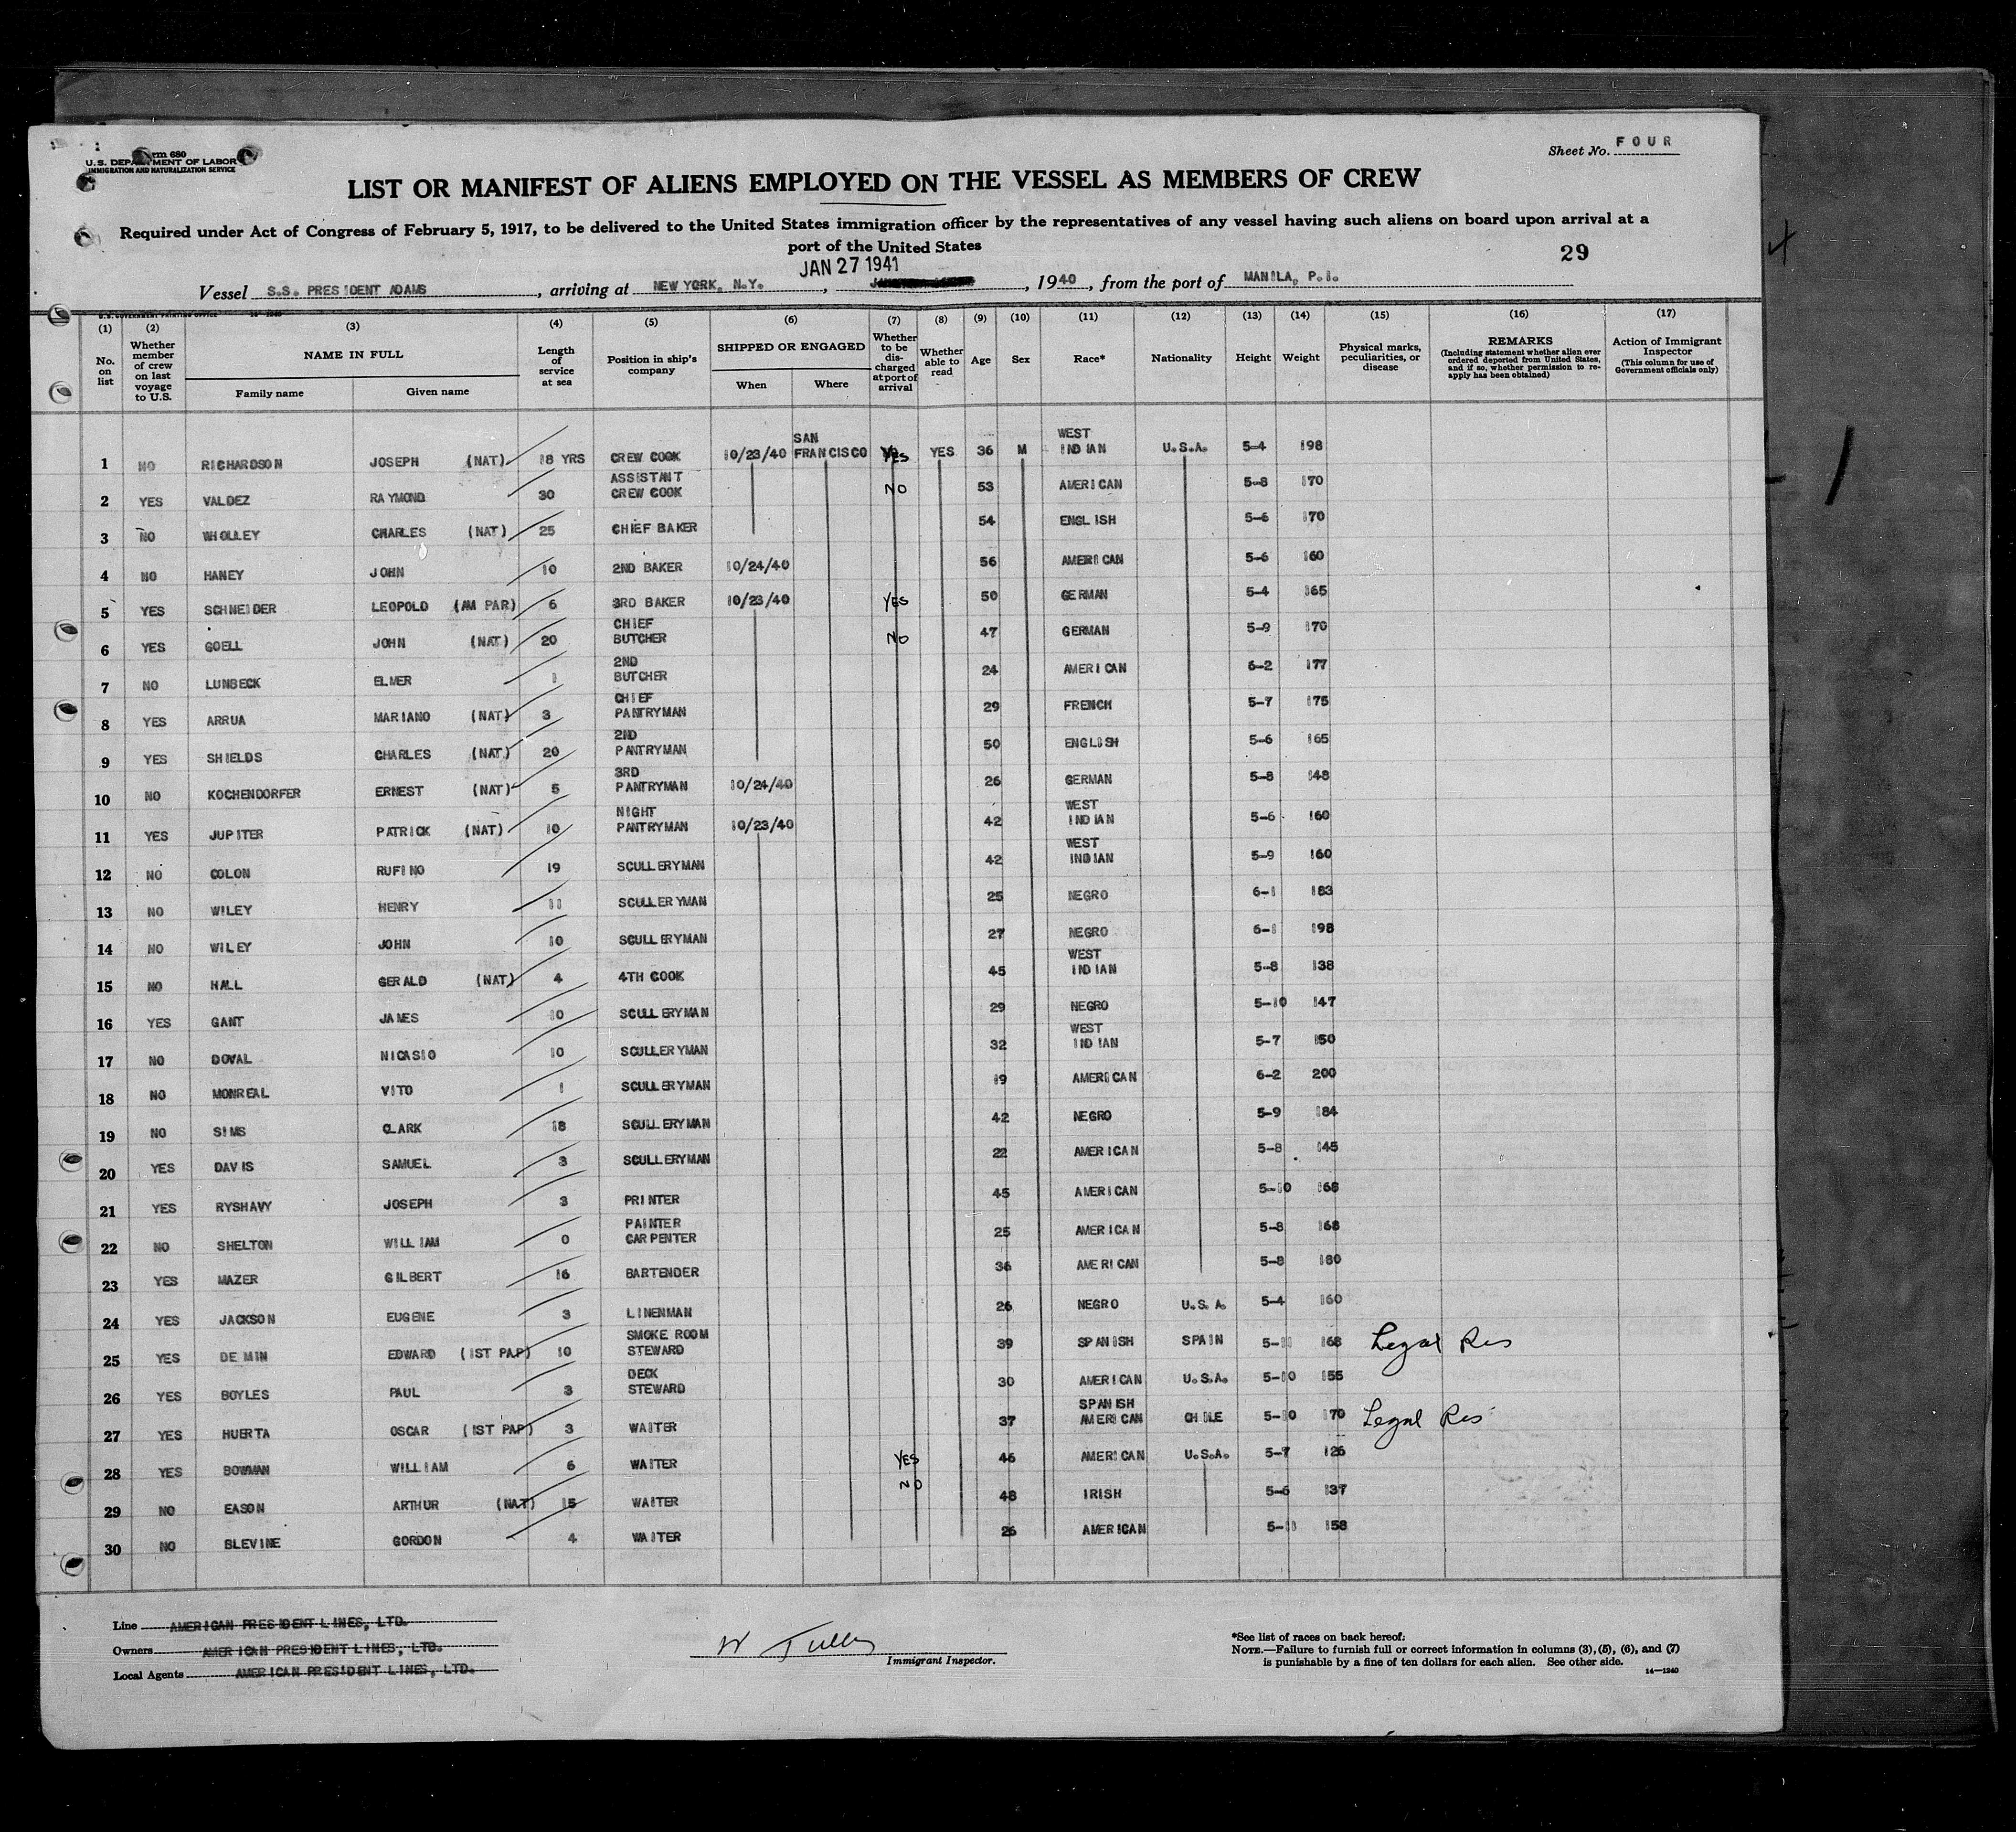 Sheet No. FOUR
rm 680
U.S. DEPARTMENT OF LABOR
IMMIGRATION AND NATURALIZATION SERVICE
LIST OR MANIFEST OF ALIENS EMPLOYED ON THE VESSEL AS MEMBERS OF CREW
Required under Act of Congress of February 5, 1917, to be delivered to the United States immigration officer by the representatives of any vessel having such aliens on board upon arrival at a
port of the United States
29
JAN 27 1941
Vessel S.S. PRESIDENT ADAMS, arriving at NEW YORK, N.Y., 1940, from the port of MANILA, P.I.
U.S. GOVERNMENT PRINTING OFFICE
(1) (2) (3) (4) (5) (6) (7) (8) (9) (10) (11) (12) (13) (14) (15) (16) (17)
No. on list
Whether member of crew on last voyage to U.S.
NAME IN FULL
Family name
Given name
Length of service at sea
Position in ship's company
SHIPPED OR ENGAGED
When
Where
Whether to be discharged at port of arrival
Whether able to read
Age
Sex
Race*
Nationality
Height
Weight
Physical marks, peculiarities, or disease
REMARKS
(Including statement whether alien ever ordered deported from United States, and if so, whether permission to reapply has been obtained)
Action of Immigrant Inspector
(This column for use of Government officials only)
1 NO RICHARDSON JOSEPH (NAT) 18 YRS CREW COOK 10/23/40 SAN FRANCISCO YES YES 36 M WEST INDIAN U.S.A. 5-4 198
2 YES VALDEZ RAYMOND 30 ASSISTANT CREW COOK NO 53 AMERICAN 5-8 170
3 NO WHOLLEY CHARLES (NAT) 25 CHIEF BAKER 54 ENGLISH 5-6 170
4 NO HANEY JOHN 10 2ND BAKER 10/24/40 56 AMERICAN 5-6 160
5 YES SCHNEIDER LEOPOLD (AM PAR) 6 3RD BAKER 10/23/40 YES 50 GERMAN 5-4 165
6 YES GOELL JOHN (NAT) 20 CHIEF BUTCHER NO 47 GERMAN 5-9 170
7 NO LUNBECK ELMER 1 2ND BUTCHER 24 AMERICAN 6-2 177
8 YES ARRUA MARIANO (NAT) 3 CHIEF PANTRYMAN 29 FRENCH 5-7 175
9 YES SHIELDS CHARLES (NAT) 20 2ND PANTRYMAN 50 ENGLISH 5-6 165
10 NO KOCHENDORFER ERNEST (NAT) 5 3RD PANTRYMAN 10/24/40 26 GERMAN 5-8 148
11 YES JUPITER PATRICK (NAT) 10 NIGHT PANTRYMAN 10/23/40 42 WEST INDIAN 5-6 160
12 NO COLON RUFINO 19 SCULLERYMAN 42 WEST INDIAN 5-9 160
13 NO WILEY HENRY 11 SCULLERYMAN 25 NEGRO 6-1 183
14 NO WILEY JOHN 10 SCULLERYMAN 27 NEGRO 6-1 198
15 NO HALL GERALD (NAT) 4 4TH COOK 45 WEST INDIAN 5-8 138
16 YES GANT JAMES 10 SCULLERYMAN 29 NEGRO 5-10 147
17 NO DOVAL NICASIO 10 SCULLERYMAN 32 WEST INDIAN 5-7 150
18 NO MONREAL VITO 1 SCULLERYMAN 19 AMERICAN 6-2 200
19 NO SIMS CLARK 18 SCULLERYMAN 42 NEGRO 5-9 184
20 YES DAVIS SAMUEL 3 SCULLERYMAN 22 AMERICAN 5-8 145
21 YES RYSHAVY JOSEPH 3 PRINTER 45 AMERICAN 5-10 168
22 NO SHELTON WILLIAM 0 PAINTER CARPENTER 25 AMERICAN 5-8 168
23 YES MAZER GILBERT 16 BARTENDER 36 AMERICAN 5-8 180
24 YES JACKSON EUGENE 3 LINENMAN 26 NEGRO U.S.A. 5-4 160
25 YES DE MIN EDWARD (1ST PAP) 10 SMOKE ROOM STEWARD 39 SPANISH SPAIN 5-11 168 Legal Res
26 YES BOYLES PAUL 3 DECK STEWARD 30 AMERICAN U.S.A. 5-10 155
27 YES HUERTA OSCAR (1ST PAP) 3 WAITER 37 SPANISH AMERICAN CHILE 5-10 170 Legal Res
28 YES BOWMAN WILLIAM 6 WAITER YES 46 AMERICAN U.S.A. 5-7 126
29 NO EASON ARTHUR (NAT) 15 WAITER NO 48 IRISH 5-6 137
30 NO BLEVINE GORDON 4 WAITER 26 AMERICAN 5-11 158
Line AMERICAN PRESIDENT LINES, LTD.
Owners AMERICAN PRESIDENT LINES, LTD.
Local Agents AMERICAN PRESIDENT LINES, LTD.
W Tulley
Immigrant Inspector.
*See list of races on back hereof.
NOTE.—Failure to furnish full or correct information in columns (3), (5), (6), and (7)
is punishable by a fine of ten dollars for each alien. See other side.
14—1240